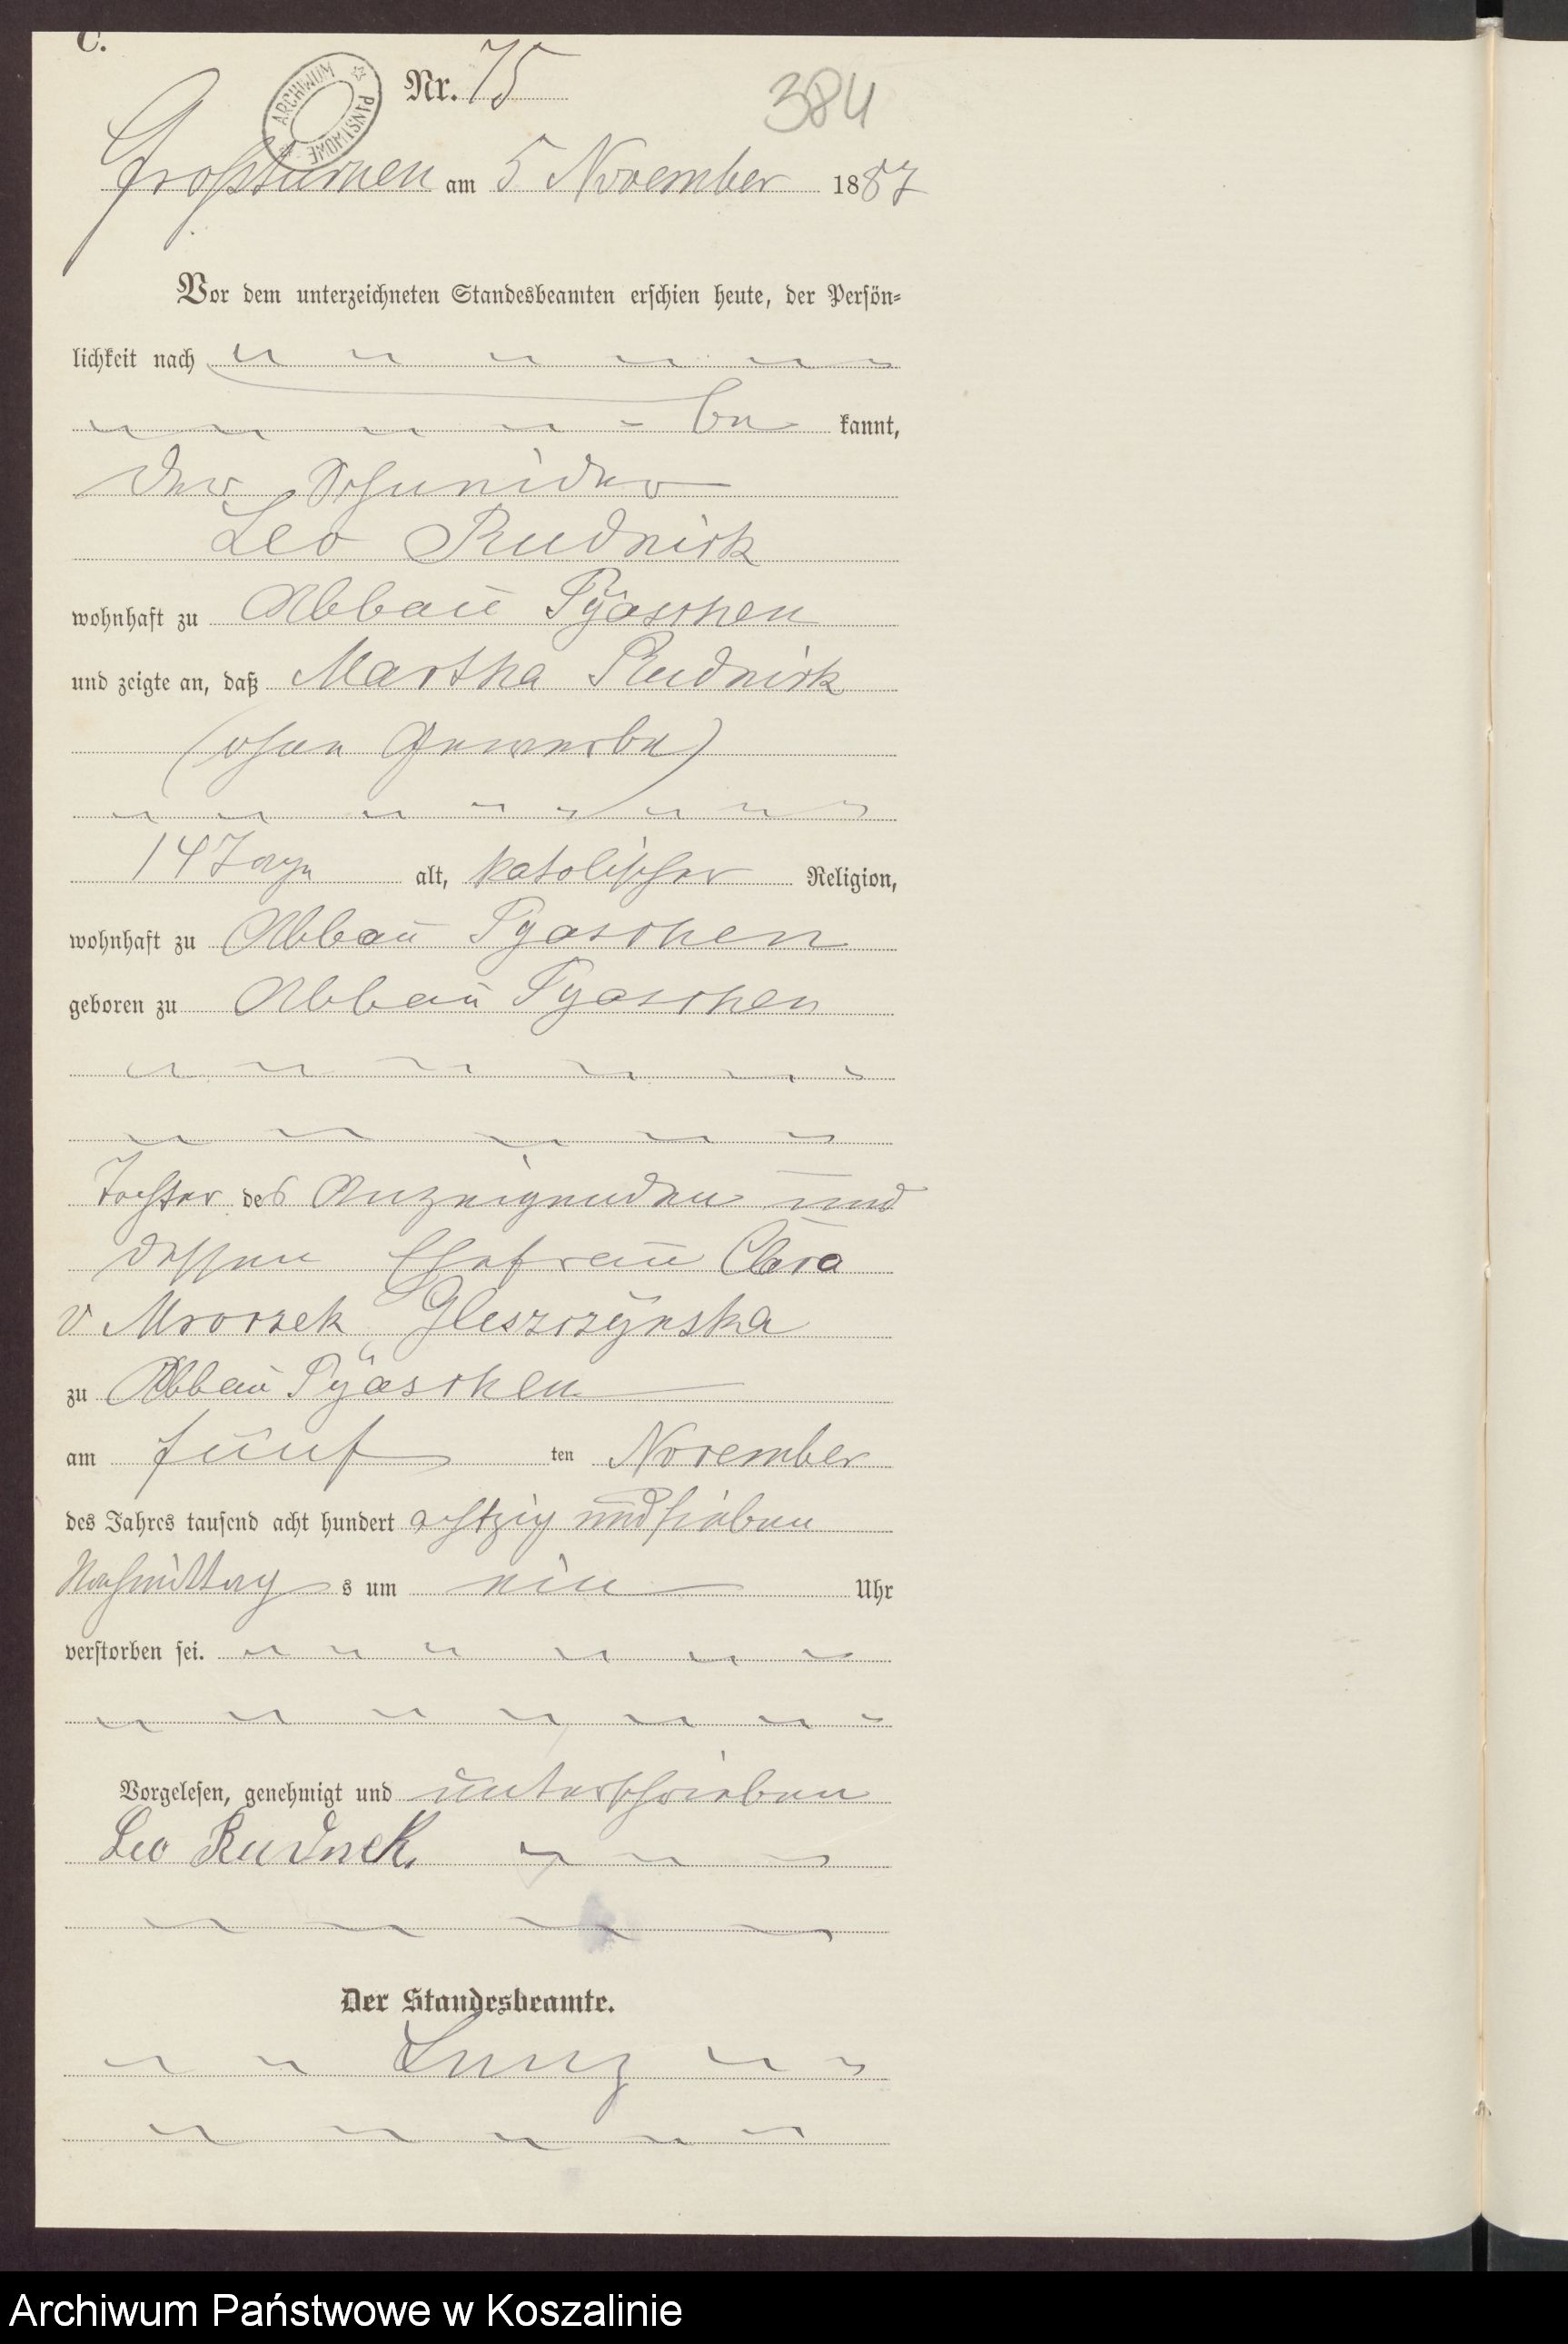 C.
Nr. 75
384
ARCHIWUM PAŃSTWOWE
Großtuchen am 5 November 1887
Vor dem unterzeichneten Standesbeamten erschien heute, der Persön-
lichkeit nach
be kannt,
der Schneider
Leo Rudnick
wohnhaft zu Abbau Pyaschen
und zeigte an, daß Martha Rudnick
(ohne Gewerbe)
14 Tage alt, katolischer Religion,
wohnhaft zu Abbau Pyaschen
geboren zu Abbau Pyaschen
Tochter des Anzeigenden und
dessen Ehefrau Clara
v Mroczek
zu Abbau Pyaschen
am fünf ten November
des Jahres tausend acht hundert achtzig und sieben
Nachmittag s um ein Uhr
verstorben sei.
Vorgelesen, genehmigt und unterschrieben
Leo Rudnek.
Der Standesbeamte.
Archiwum Państwowe w Koszalinie